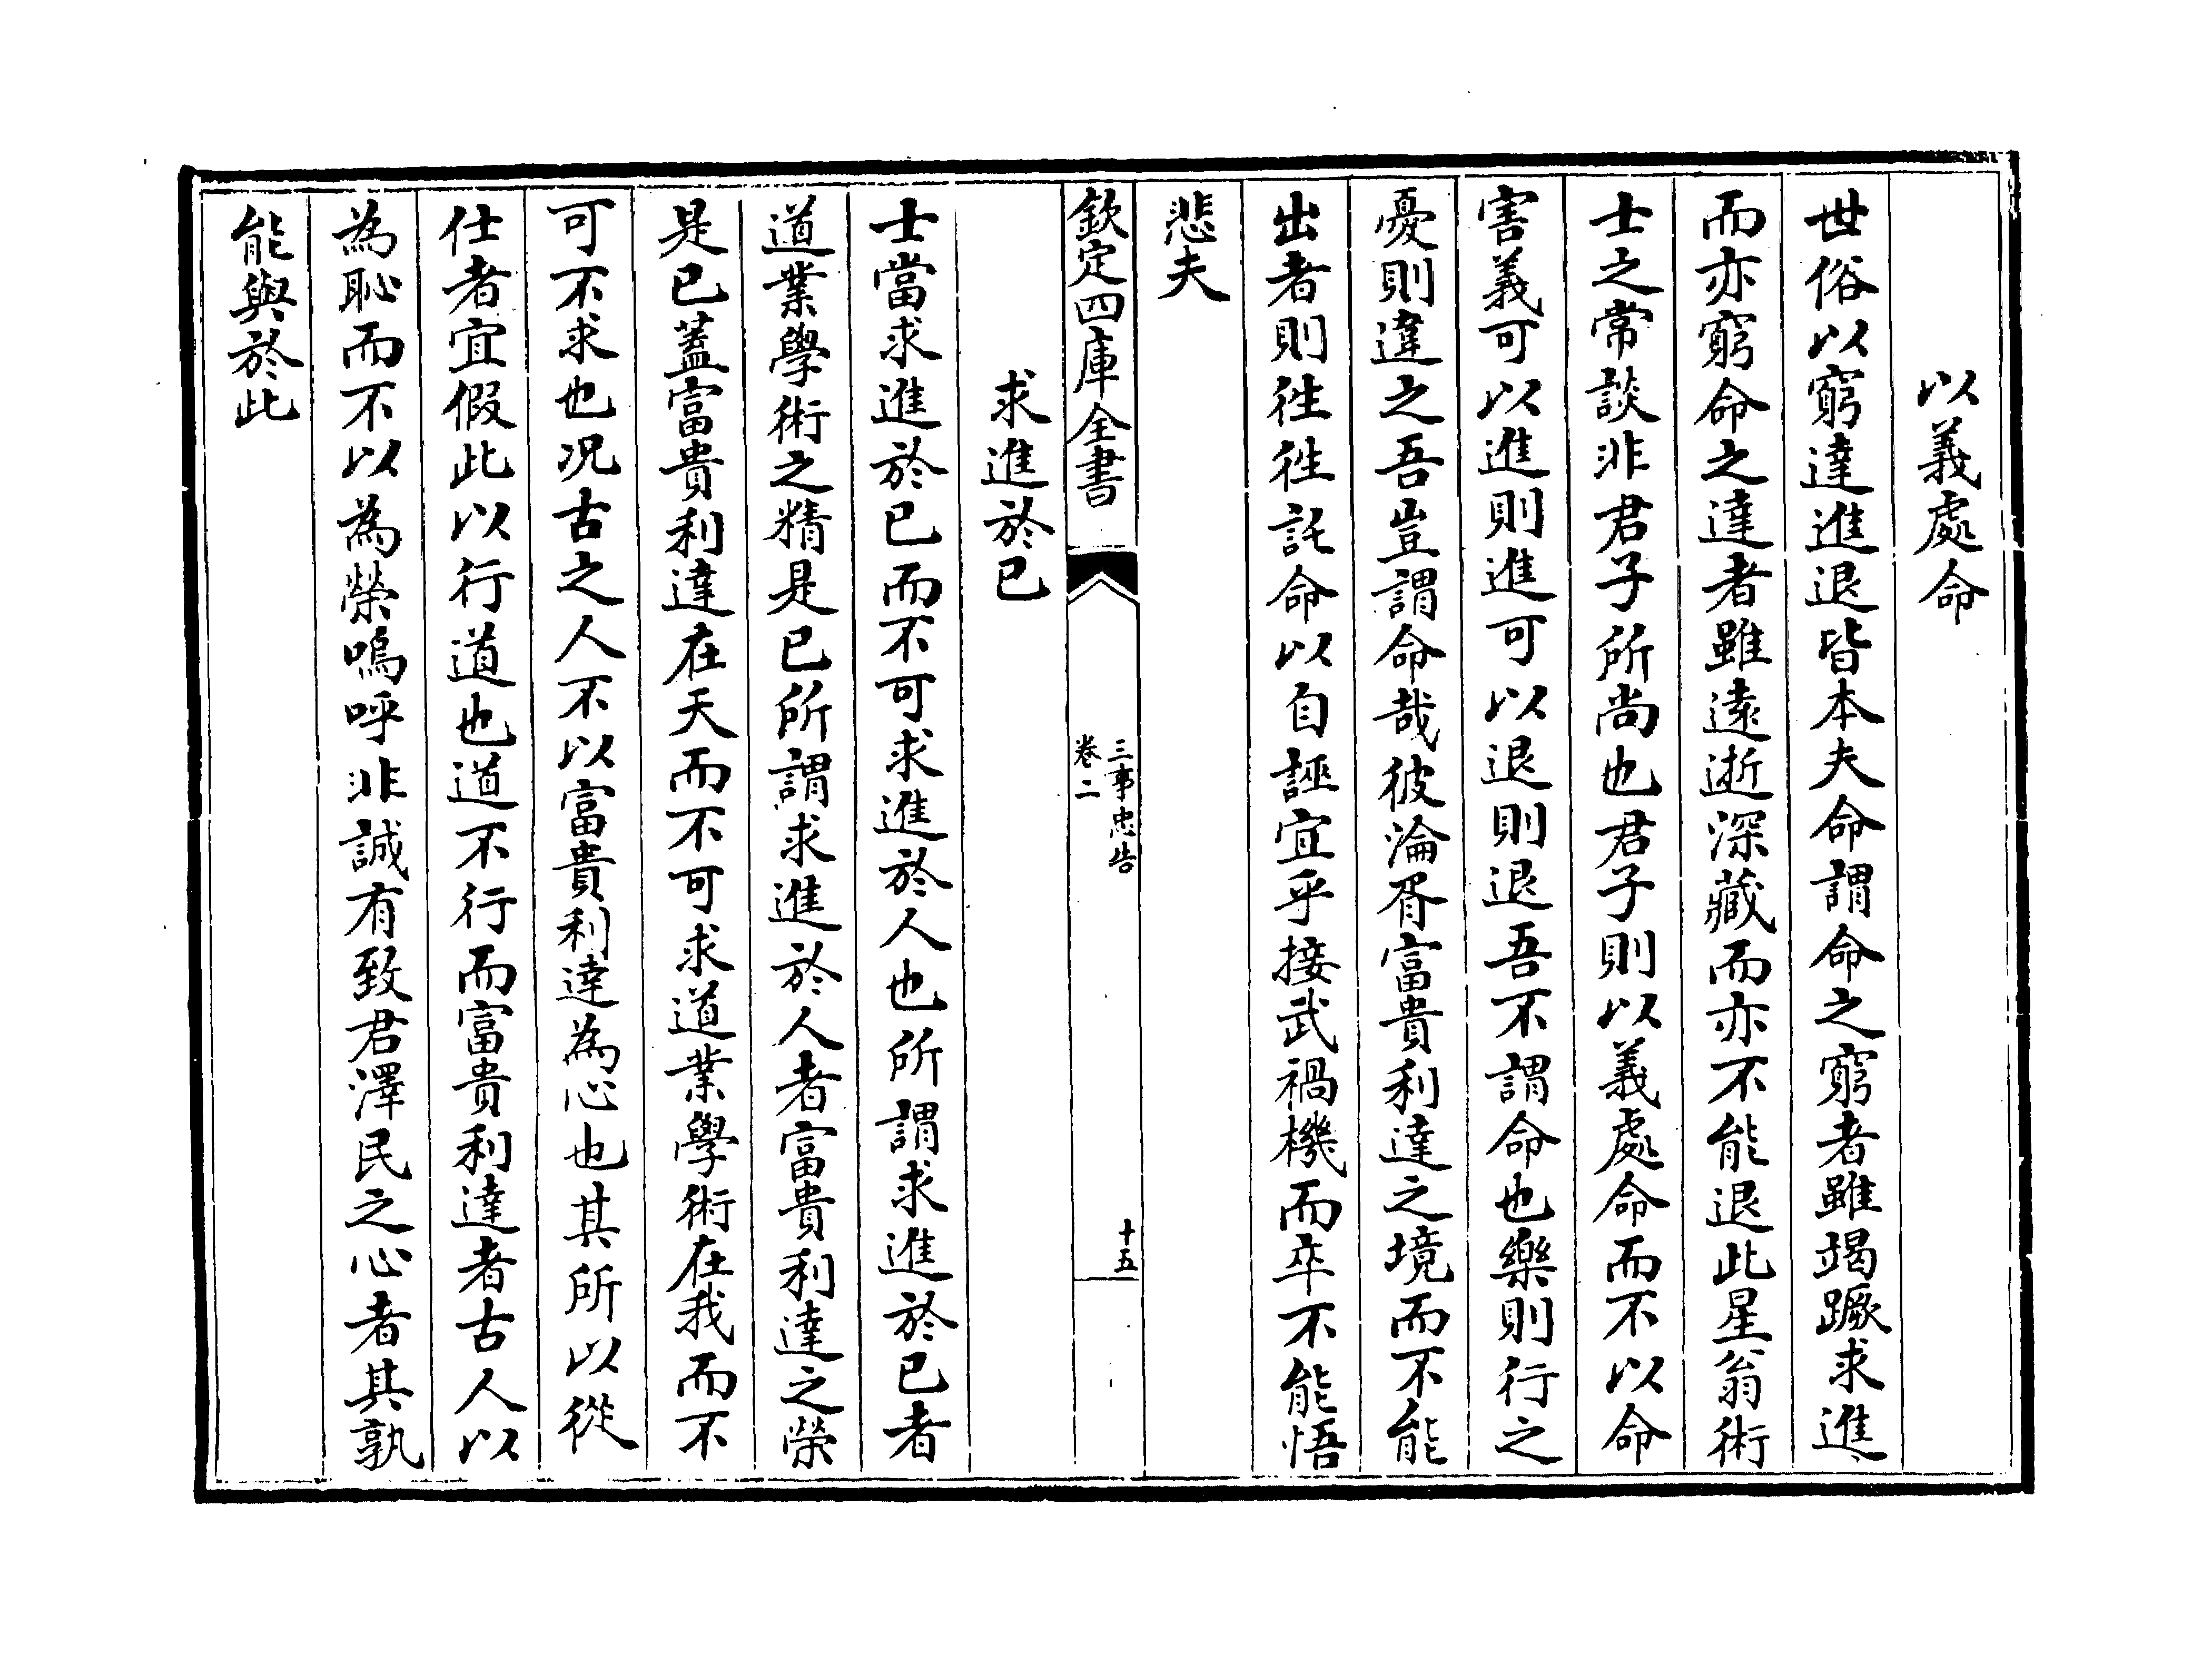 以義處命
世俗以窮達進退皆本夫命謂命之窮者雖竭蹶求進
而亦窮命之達者雖遠逝深藏而亦不能退此星翁術
士之常談非君子所尚也君子則以義處命而不以命
害義可以進則進可以退則退吾不謂命也樂則行之
憂則違之吾豈謂命哉彼淪胥富貴利達之境而不能
出者則徃徃託命以自誣宜乎接武禍機而卒不能悟
悲夫
欽定四庫全書
三事忠告
卷二
十五
求進於已
士當求進於已而不可求進於人也所謂求進於已者
道業學術之精是已所謂求進於人者富貴利達之榮
是已葢富貴利達在天而不可求道業學術在我而不
可不求也况古之人不以富貴利達為心也其所以從
仕者宜假此以行道也道不行而富貴利達者古人以
為恥而不以為榮嗚呼非誠有致君澤民之心者其孰
能與於此